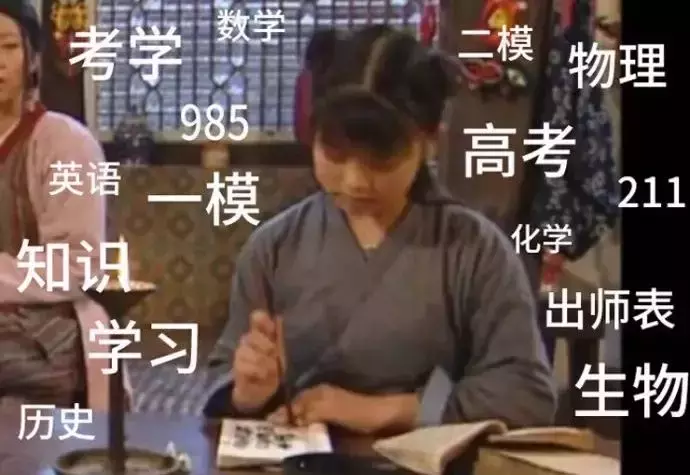 数学
考学
二模
物理
985
高考
英语
一模
211
化学
知识
出师表
学习
生物
历史